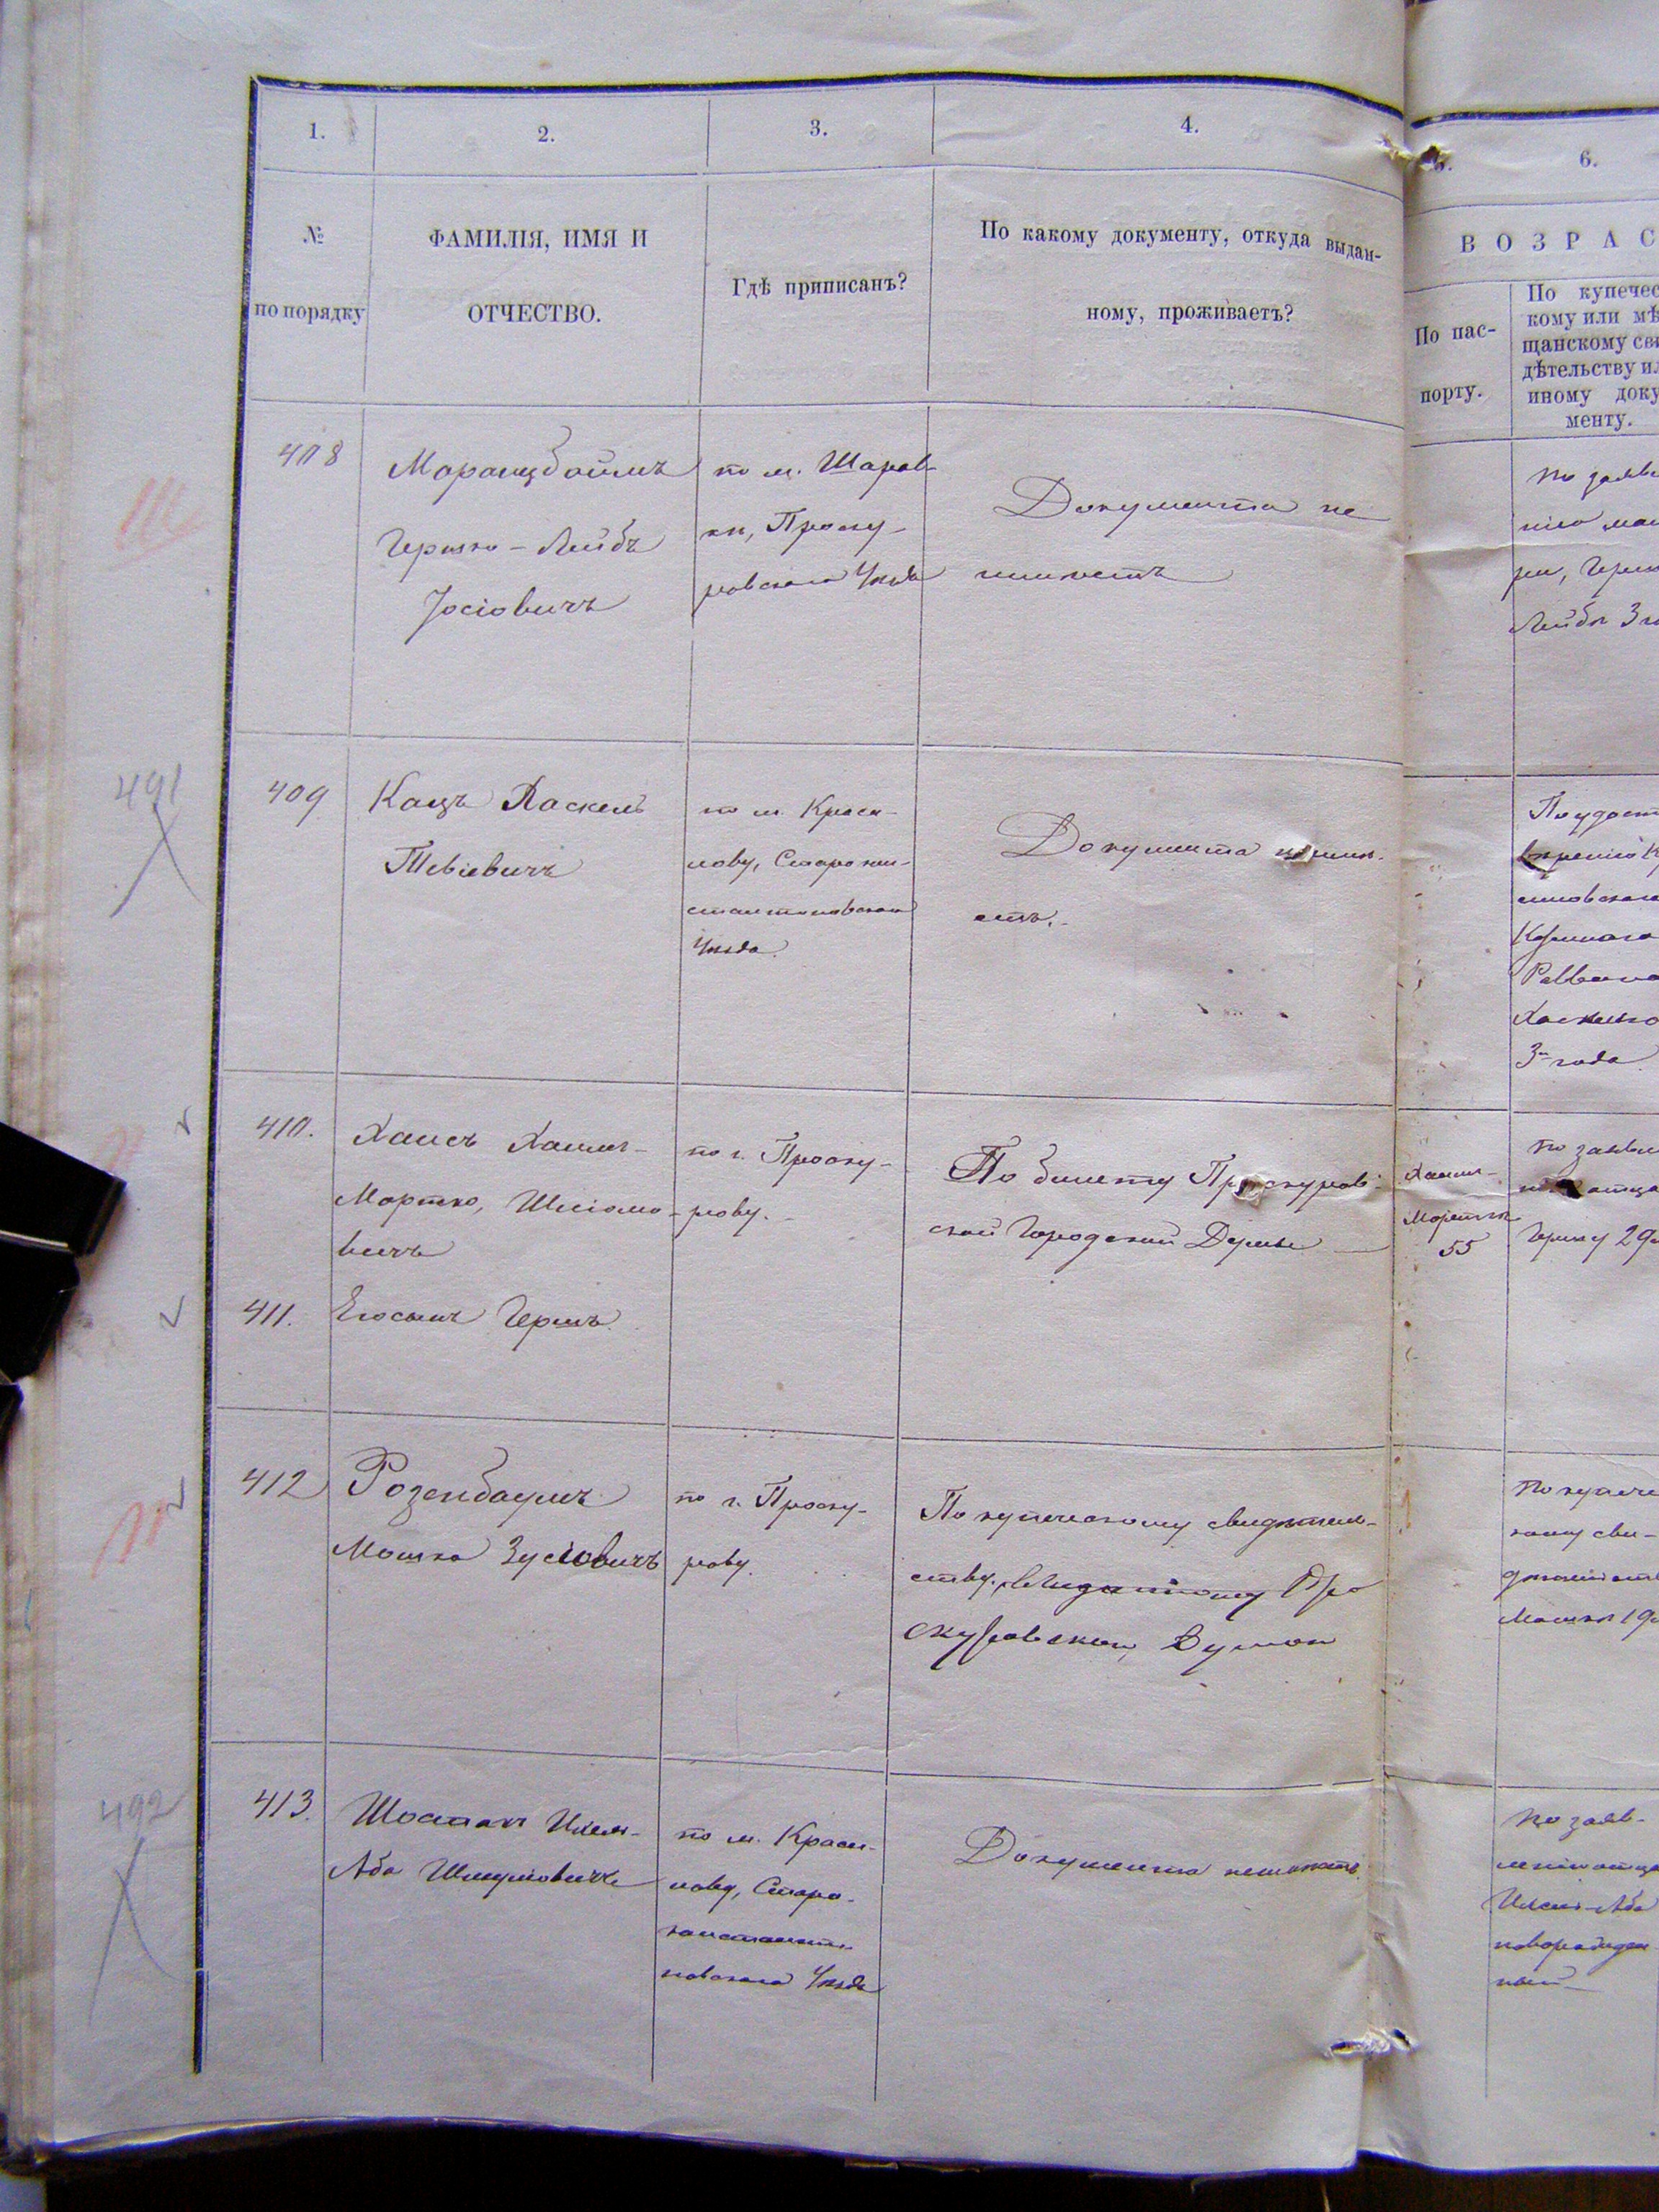 1.
2.
3.
4.
6.
№
по порядку
ФАМИЛІЯ, ИМЯ И
ОТЧЕСТВО.
Гдѣ приписанъ?
По какому документу, откуда выдан-
ному, проживаетъ?
ВОЗРАС
По пас-
порту.
По купечес
кому или мѣ
щанскому сви
дѣтельству ил
иному доку
менту.
408
Моранцбоймъ
Гершко-Лейбъ
Іосіовичъ
по м. Шаров-
ки, Проску-
ровскаго Уѣзда
Документа не
имѣетъ
по заявле
нію мат
ри, Герш
Лейбѣ 3 го
491
409
Кацъ Хаскель
Тевіевичъ
по м. Краси-
лову, Старокон-
стантиновскаго
Уѣзда.
Документа неимѣ-
етъ.
По удост
вѣренію К
силовскаго
Казеннаго
Раввина
Хаскелю
3 года
410.
Хаимъ-
Мортко, Шліомо-
вичъ
по г. Проску-
рову.
По билету Проскуров-
ской Городской Думы
Хаимъ-
Мортки
55
по заявле
нію отца
Гершу 29
411.
Егосынъ Гершъ.
412
Розенбаумъ
Мошко Зусіовичъ
по г. Проску-
рову.
По купеческому свидѣтель-
ству, выданному Про
скуровскою Думою
По купече
кому сви-
дѣтельств
Мошкѣ 19
492
413.
Шостакъ Ихель-
Аба Шмуліовичъ
по м. Краси-
лову, Старо-
константи-
новскаго Уѣзда
Документа неимѣетъ.
по заяв-
ленію отца
Ихель-Аба
новорожден-
ный